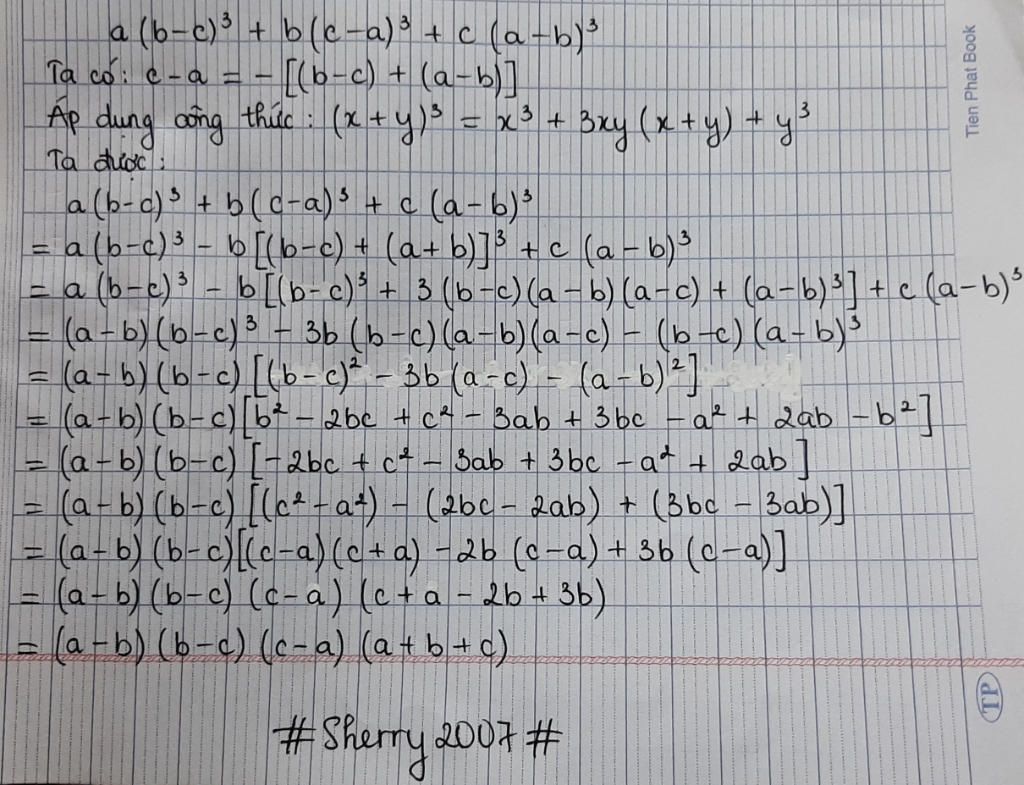 a(b-c)³ + b(c-a)³ + c(a-b)³
Ta có: c-a = -[(b-c) + (a-b)]
Áp dụng công thức: (x+y)³ = x³ + 3xy(x+y) + y³
Ta được:
a(b-c)³ + b(c-a)³ + c(a-b)³
= a(b-c)³ - b[(b-c) + (a+b)]³ + c(a-b)³
= a(b-c)³ - b[(b-c)³ + 3(b-c)(a-b)(a-c) + (a-b)³] + c(a-b)³
= (a-b)(b-c)³ - 3b(b-c)(a-b)(a-c) - (b-c)(a-b)³
= (a-b)(b-c)[(b-c)² - 3b(a-c) - (a-b)²]
= (a-b)(b-c)[b² - 2bc + c² - 3ab + 3bc - a² + 2ab - b²]
= (a-b)(b-c)[-2bc + c² - 3ab + 3bc - a² + 2ab]
= (a-b)(b-c)[(c²-a²) - (2bc - 2ab) + (3bc - 3ab)]
= (a-b)(b-c)[(c-a)(c+a) - 2b(c-a) + 3b(c-a)]
= (a-b)(b-c)(c-a)(c+a-2b+3b)
= (a-b)(b-c)(c-a)(a+b+c)
#Sherry2007#
Tien Phat Book
TP